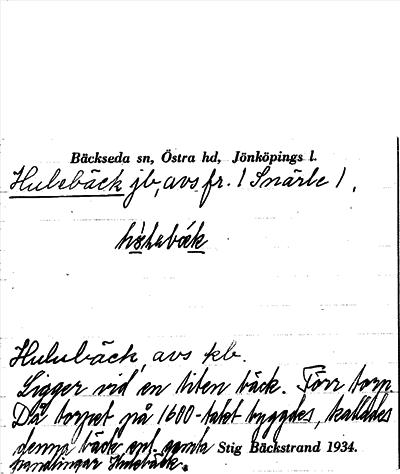 Bäckseda sn, Östra hd, Jönköpings l.
Hulebäck jb, avs fr. 1 Snärle 1,
Hulubäck, avs kb.
Ligger vid en liten bäck. Förr torp.
Då torpet på 1600-talet byggdes, kallades
denna bäck enl. gamla Stig Bäckstrand 1934.
handlingar Hulebäck.